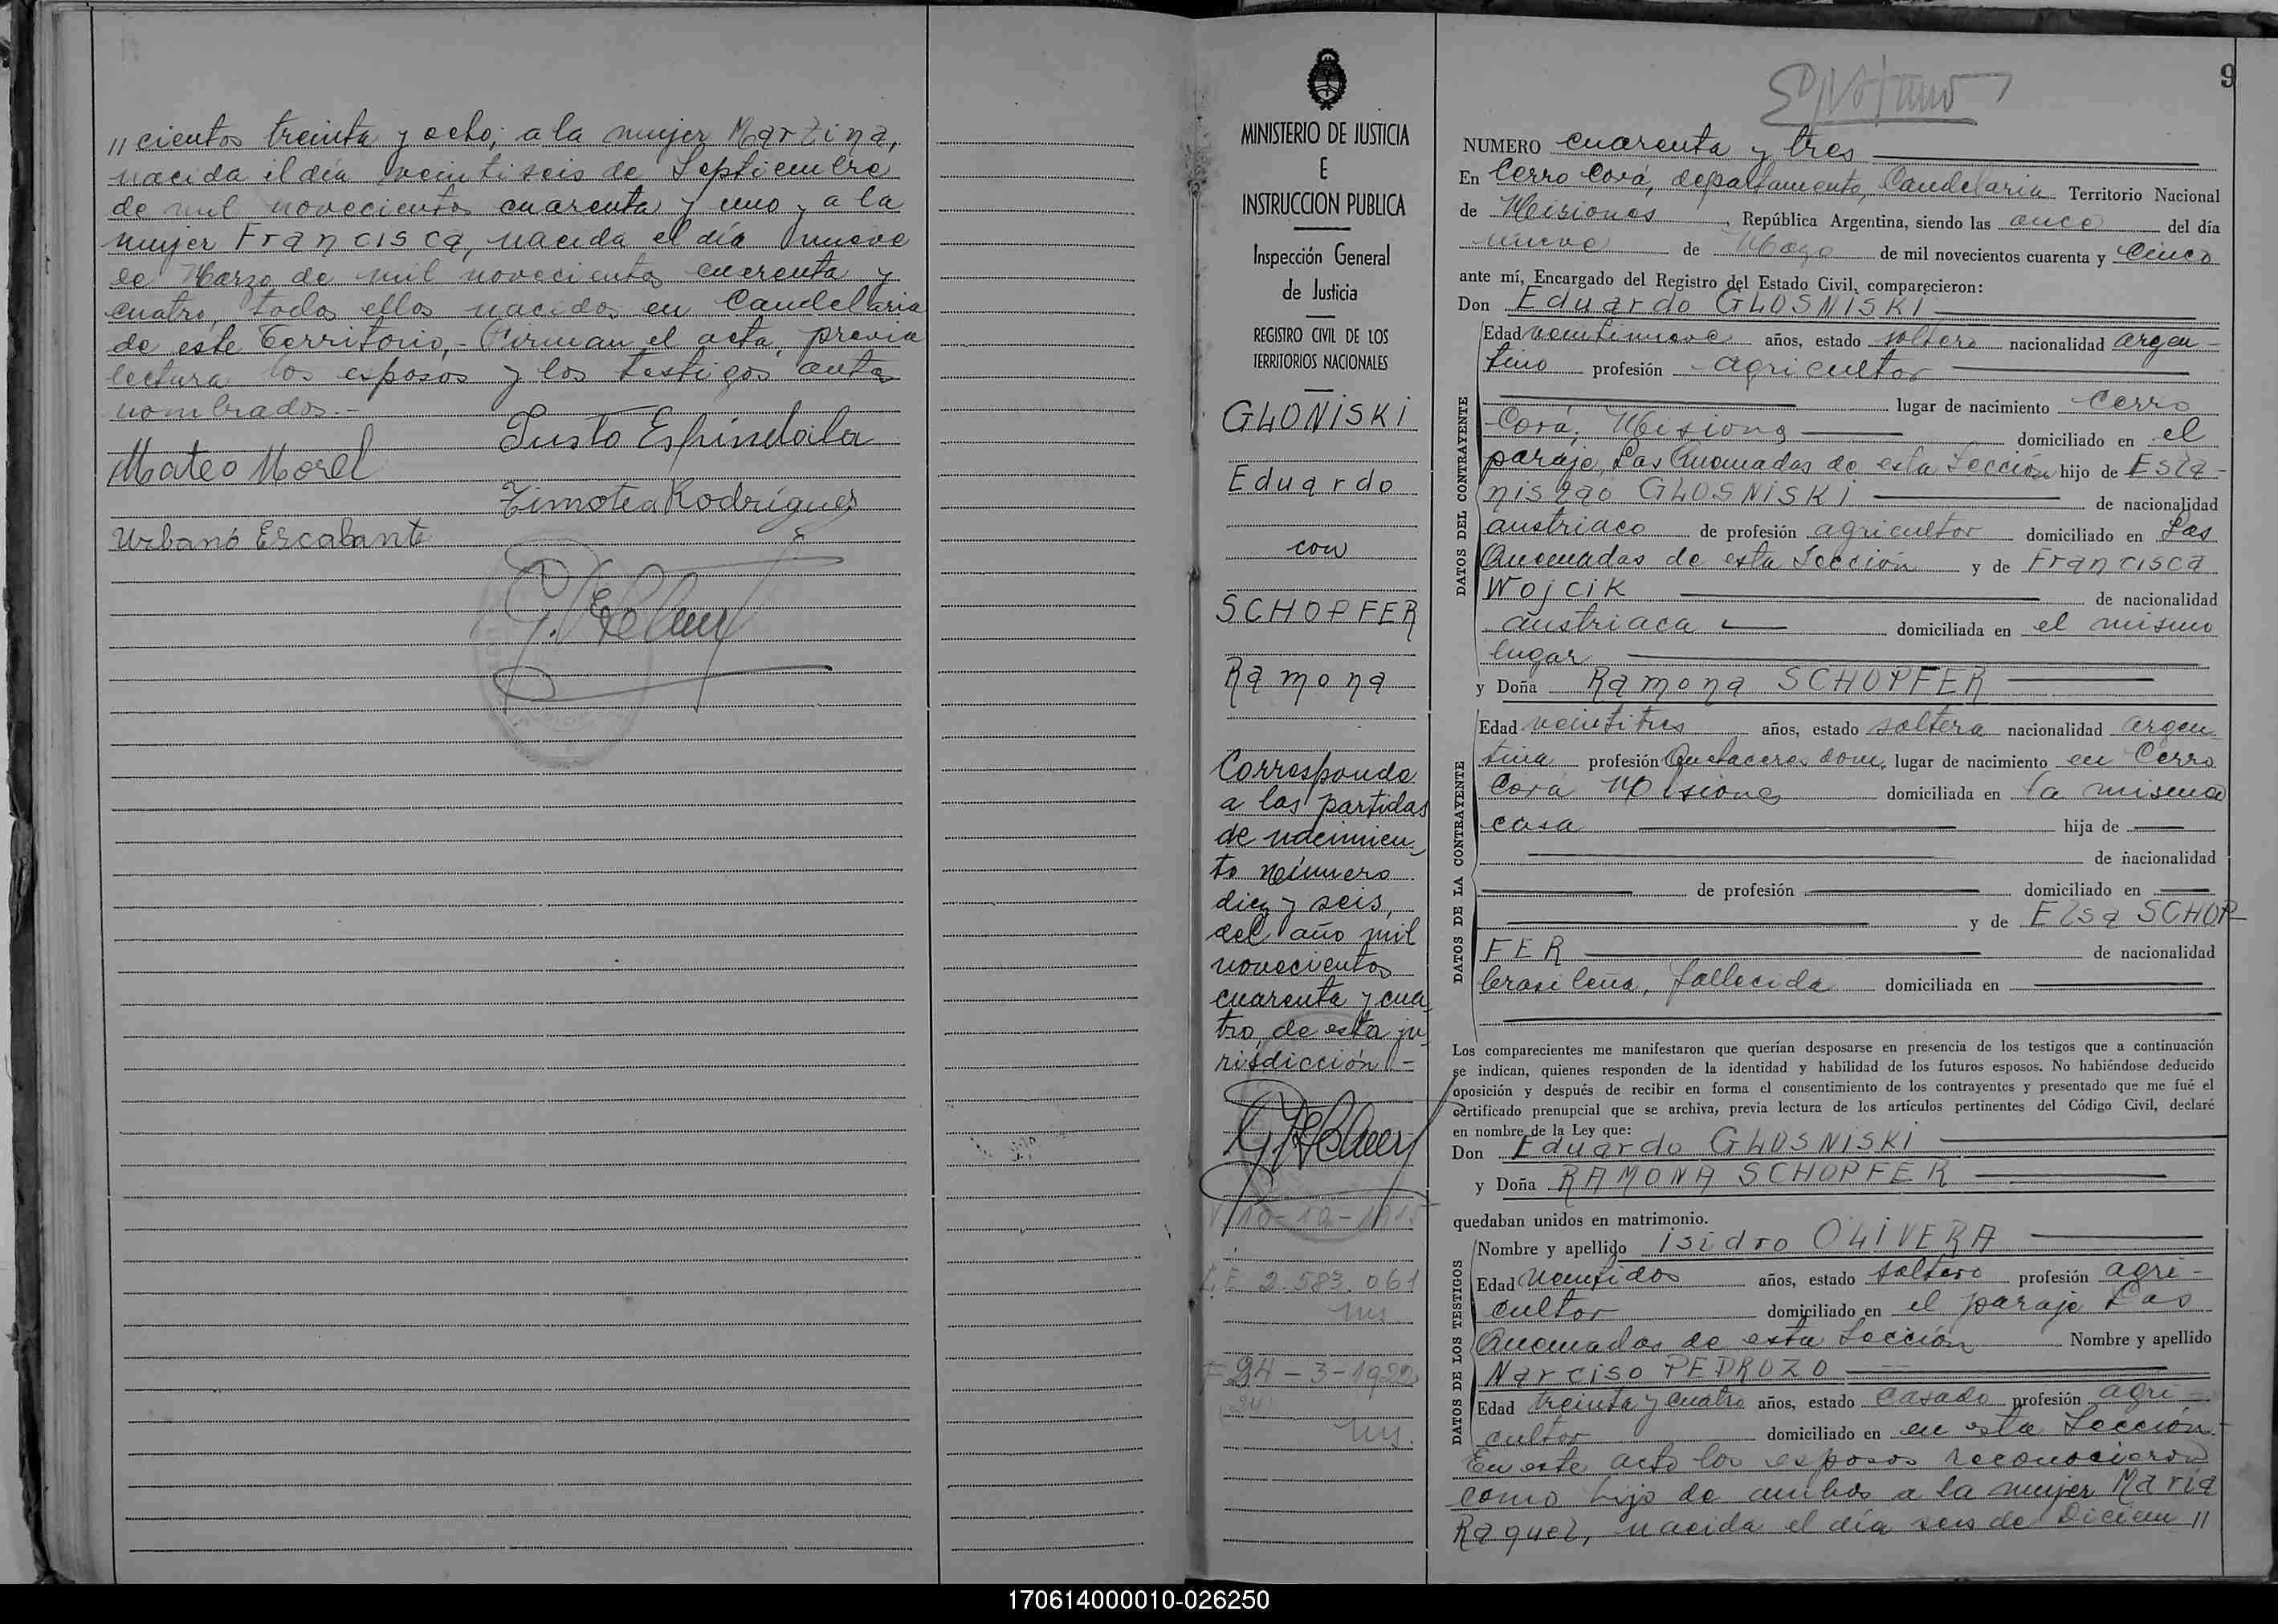 "cientos treinta y ocho; a la mujer Martina,
nacida el día veintiseis de Septiembre
de mil novecientos cuarenta y uno y a la
mujer Francisca, nacida el día nueve
de Marzo de mil novecientos cuarenta y
cuatro, todos ellos nacidos en Candelaria
de este Territorio.- Firman el acta, previa
lectura los esposos y los testigos antes
nombrados.-
Justo Espindola
Mateo Morel
Timotea Rodríguez
Urbano Escalante
MINISTERIO DE JUSTICIA
E
INSTRUCCION PUBLICA
Inspección General
de Justicia
REGISTRO CIVIL DE LOS
TERRITORIOS NACIONALES
GLONISKI
Eduardo
con
SCHOPFER
Ramona
Corresponde
a las partidas
de nacimien-
to número
diez y seis,
del año mil
novecientos
cuarenta y cua-
tro, de esta ju-
risdicción.-
L.E. 2.583.061
24-3-
9
NUMERO cuarenta y tres
En Cerro Corá, departamento, Candelaria Territorio Nacional
de Misiones, República Argentina, siendo las once del día
nueve de Mayo de mil novecientos cuarenta y cinco
ante mí, Encargado del Registro del Estado Civil, comparecieron:
Don Eduardo GLOSNISKI
DATOS DEL CONTRAYENTE
Edad veintinueve años, estado soltero nacionalidad argen-
tino profesión agricultor
lugar de nacimiento Cerro
Corá, Misiones domiciliado en el
paraje Las Quemadas de esta Sección hijo de Esta-
nislao GLOSNISKI de nacionalidad
austriaco de profesión agricultor domiciliado en Las
Quemadas de esta Sección y de Francisca
Wojcik de nacionalidad
austriaca domiciliada en el mismo
lugar
y Doña Ramona SCHOPFER
DATOS DE LA CONTRAYENTE
Edad veintitres años, estado soltera nacionalidad argen-
tina profesión Quehaceres dom. lugar de nacimiento en Cerro
Corá Misiones domiciliada en la misma
casa hija de
de nacionalidad
de profesión domiciliado en
y de Elsa SCHOP-
FER de nacionalidad
brasileña, fallecida domiciliada en
Los comparecientes me manifestaron que querían desposarse en presencia de los testigos que a continuación
se indican, quienes responden de la identidad y habilidad de los futuros esposos. No habiéndose deducido
oposición y después de recibir en forma el consentimiento de los contrayentes y presentado que me fué el
certificado prenupcial que se archiva, previa lectura de los artículos pertinentes del Código Civil, declaré
en nombre de la Ley que:
Don Eduardo GLOSNISKI
y Doña RAMONA SCHOPFER
quedaban unidos en matrimonio.
DATOS DE LOS TESTIGOS
Nombre y apellido Isidro OLIVERA
Edad veintidos años, estado soltero profesión agri-
cultor domiciliado en el paraje Las
Quemadas de esta Sección Nombre y apellido
Narciso PEDROZO
Edad treinta y cuatro años, estado casado profesión agri-
cultor domiciliado en en esta Sección.-
En este acto los esposos reconocieron
como hijo de ambos a la mujer María
Raquel, nacida el día seis de Diciem "
170614000010-026250